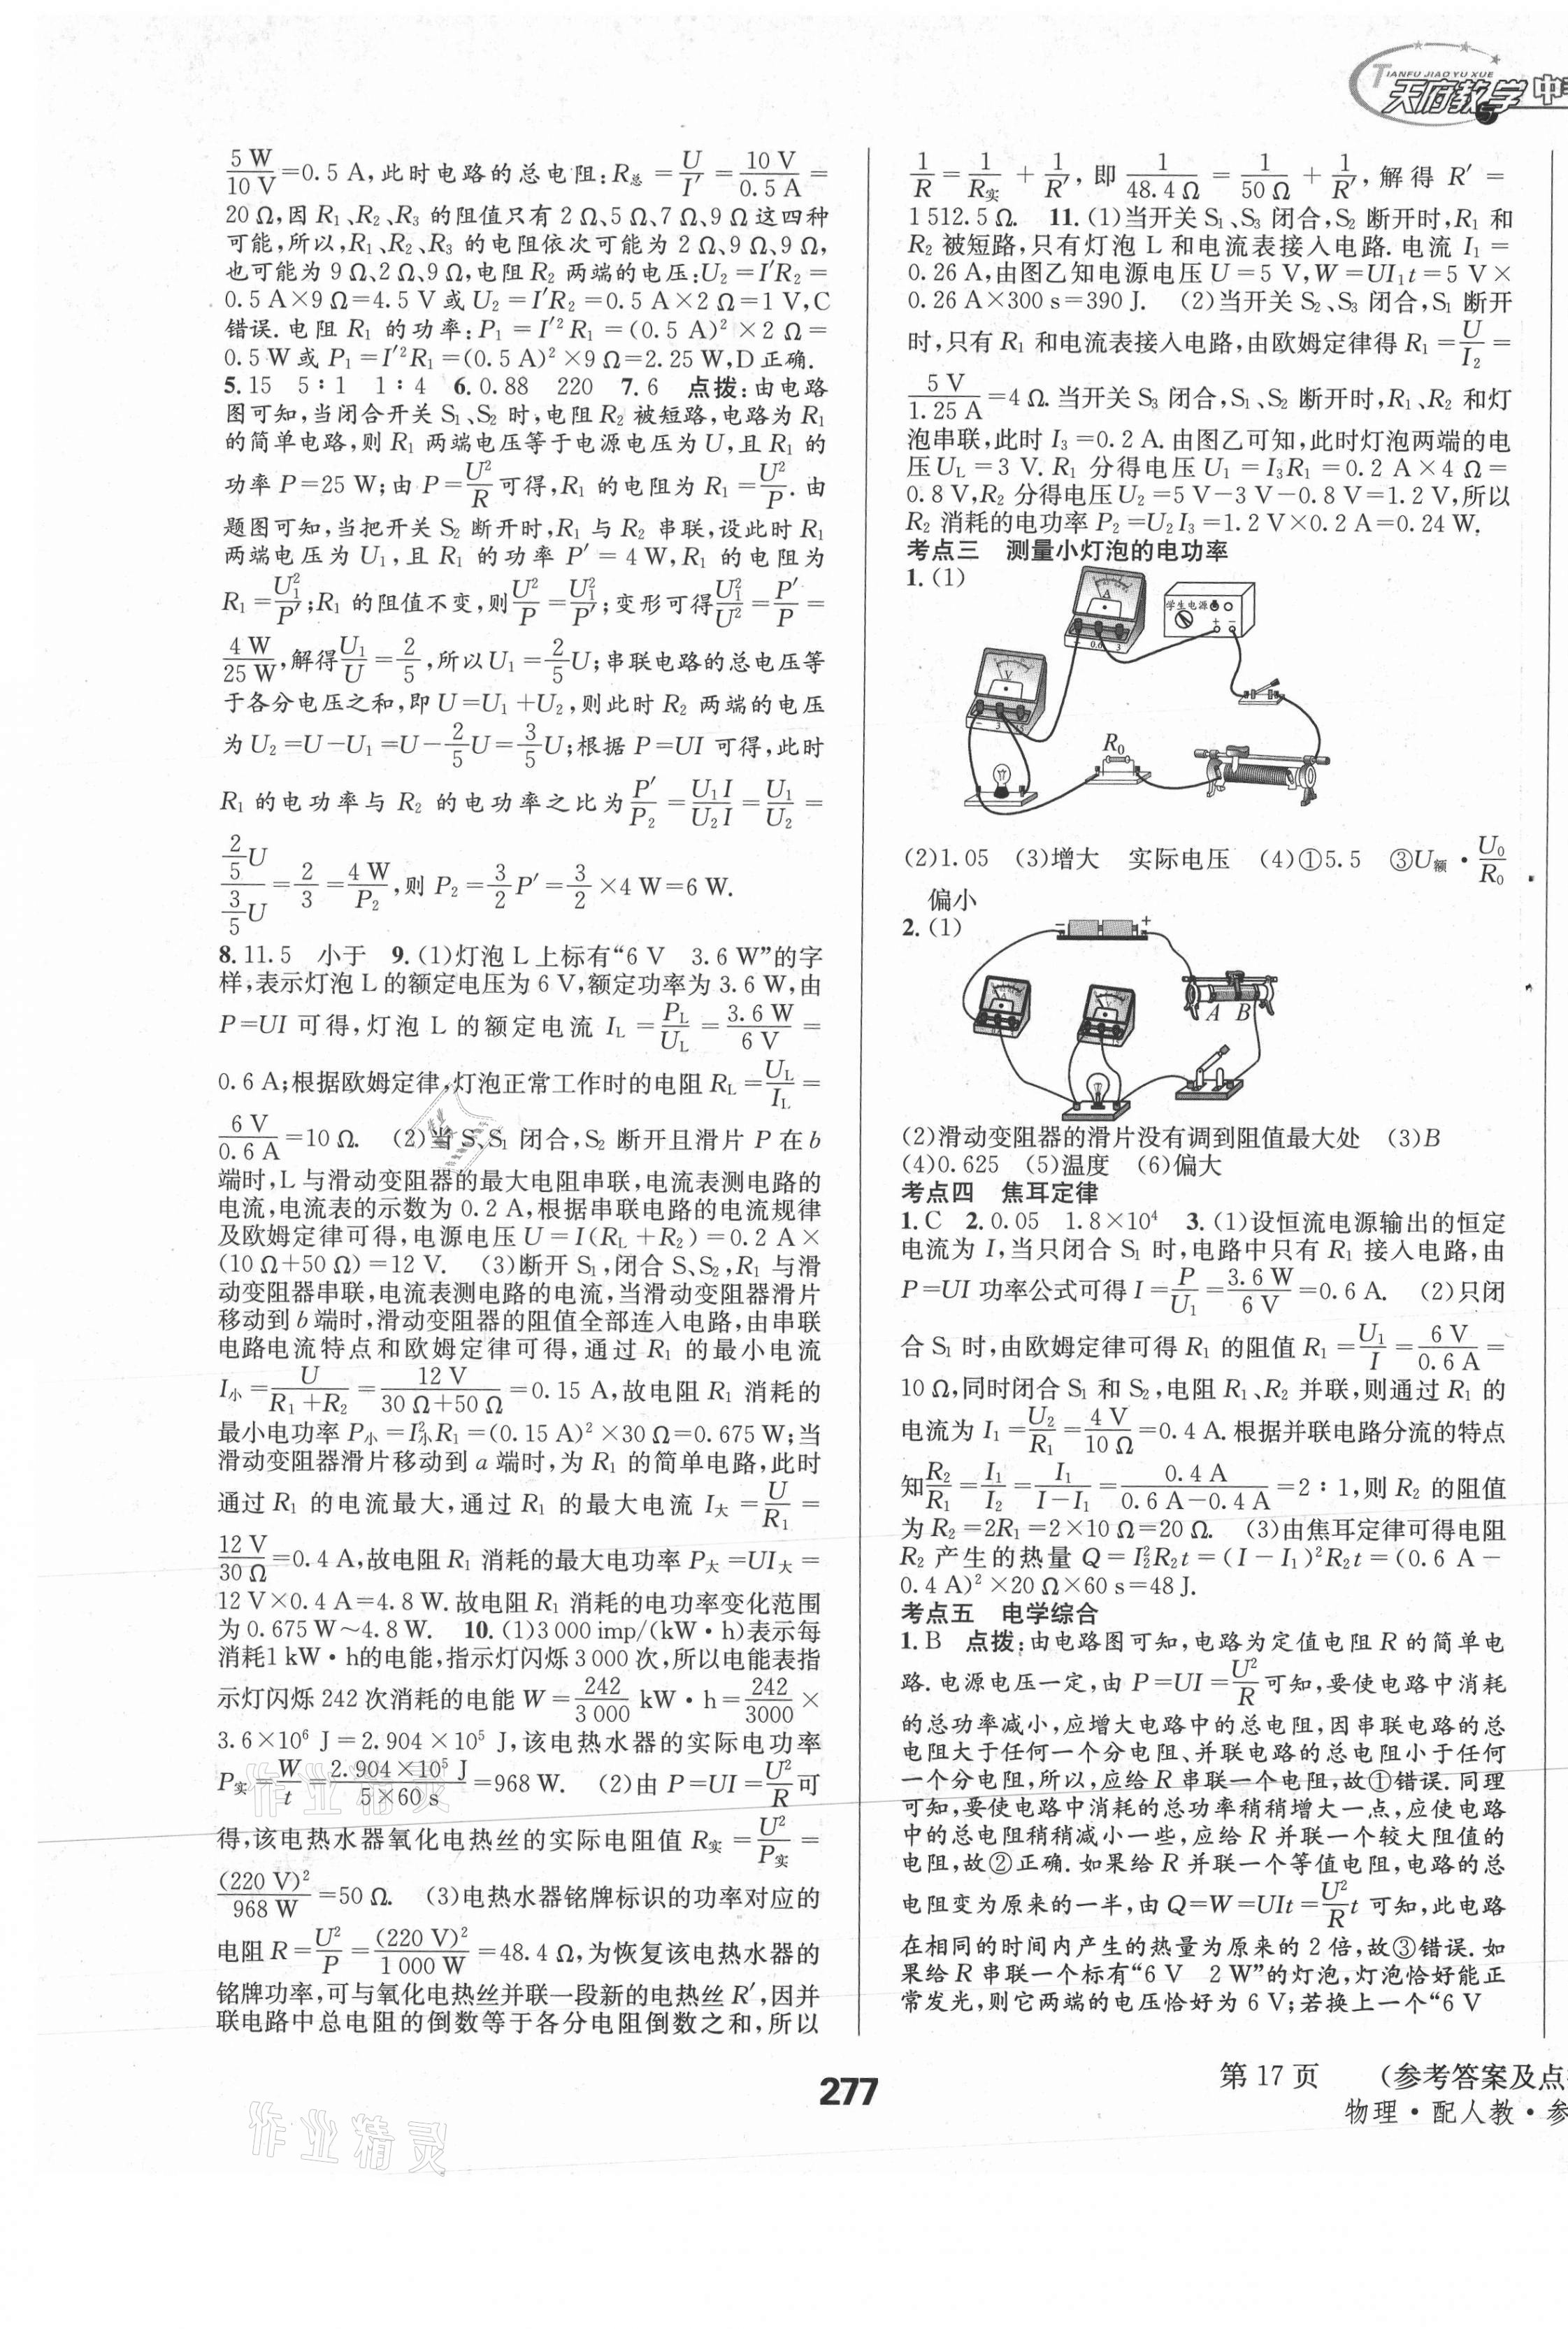 TIANFU JIAO YU XUE
天府教学 中考
5 W/10 V=0.5 A,此时电路的总电阻:R总=U/I′=10 V/0.5 A=
20 Ω,因 R₁、R₂、R₃ 的阻值只有 2 Ω、5 Ω、7 Ω、9 Ω 这四种
可能,所以,R₁、R₂、R₃ 的电阻依次可能为 2 Ω、9 Ω、9 Ω,
也可能为 9 Ω、2 Ω、9 Ω,电阻 R₂ 两端的电压:U₂=I′R₂=
0.5 A×9 Ω=4.5 V 或 U₂=I′R₂=0.5 A×2 Ω=1 V,C
错误.电阻 R₁ 的功率:P₁=I′²R₁=(0.5 A)²×2 Ω=
0.5 W 或 P₁=I′²R₁=(0.5 A)²×9 Ω=2.25 W,D 正确.
5.15 5∶1 1∶4 6.0.88 220 7.6 点拨:由电路
图可知,当闭合开关 S₁、S₂ 时,电阻 R₂ 被短路,电路为 R₁
的简单电路,则 R₁ 两端电压等于电源电压为 U,且 R₁ 的
功率 P=25 W;由 P=U²/R 可得,R₁ 的电阻为 R₁=U²/P.由
题图可知,当把开关 S₂ 断开时,R₁ 与 R₂ 串联,设此时 R₁
两端电压为 U₁,且 R₁ 的功率 P′=4 W,R₁ 的电阻为
R₁=U₁²/P′;R₁ 的阻值不变,则U²/P=U₁²/P′;变形可得U₁²/U²=P′/P=
4 W/25 W,解得U₁/U=2/5,所以 U₁=2/5U;串联电路的总电压等
于各分电压之和,即 U=U₁+U₂,则此时 R₂ 两端的电压
为 U₂=U−U₁=U−2/5U=3/5U;根据 P=UI 可得,此时
R₁ 的电功率与 R₂ 的电功率之比为P′/P₂=U₁I/U₂I=U₁/U₂=
(2/5U)/(3/5U)=2/3=4 W/P₂,则 P₂=3/2P′=3/2×4 W=6 W.
8.11.5 小于 9.(1)灯泡 L 上标有“6 V 3.6 W”的字
样,表示灯泡 L 的额定电压为 6 V,额定功率为 3.6 W,由
P=UI 可得,灯泡 L 的额定电流 I_L=P_L/U_L=3.6 W/6 V=
0.6 A;根据欧姆定律,灯泡正常工作时的电阻 R_L=U_L/I_L=
6 V/0.6 A=10 Ω. (2)当 S、S₁ 闭合,S₂ 断开且滑片 P 在 b
端时,L 与滑动变阻器的最大电阻串联,电流表测电路的
电流,电流表的示数为 0.2 A,根据串联电路的电流规律
及欧姆定律可得,电源电压 U=I(R_L+R₂)=0.2 A×
(10 Ω+50 Ω)=12 V. (3)断开 S₁,闭合 S、S₂,R₁ 与滑
动变阻器串联,电流表测电路的电流,当滑动变阻器滑片
移动到 b 端时,滑动变阻器的阻值全部连入电路,由串联
电路电流特点和欧姆定律可得,通过 R₁ 的最小电流
I小=U/(R₁+R₂)=12 V/(30 Ω+50 Ω)=0.15 A,故电阻 R₁ 消耗的
最小电功率 P小=I小²R₁=(0.15 A)²×30 Ω=0.675 W;当
滑动变阻器滑片移动到 a 端时,为 R₁ 的简单电路,此时
通过 R₁ 的电流最大,通过 R₁ 的最大电流 I大=U/R₁=
12 V/30 Ω=0.4 A,故电阻 R₁ 消耗的最大电功率 P大=UI大=
12 V×0.4 A=4.8 W.故电阻 R₁ 消耗的电功率变化范围
为 0.675 W～4.8 W. 10.(1)3 000 imp/(kW·h)表示每
消耗1 kW·h的电能,指示灯闪烁 3 000 次,所以电能表指
示灯闪烁 242 次消耗的电能 W=242/3 000 kW·h=242/3000×
3.6×10⁶ J=2.904×10⁵ J,该电热水器的实际电功率
P实=W/t=2.904×10⁵ J/5×60 s=968 W. (2)由 P=UI=U²/R可
得,该电热水器氧化电热丝的实际电阻值 R实=U²/P实=
(220 V)²/968 W=50 Ω. (3)电热水器铭牌标识的功率对应的
电阻 R=U²/P=(220 V)²/1 000 W=48.4 Ω,为恢复该电热水器的
铭牌功率,可与氧化电热丝并联一段新的电热丝 R′,因并
联电路中总电阻的倒数等于各分电阻倒数之和,所以
1/R=1/R实+1/R′,即 1/48.4 Ω=1/50 Ω+1/R′,解得 R′=
1 512.5 Ω. 11.(1)当开关 S₁、S₃ 闭合,S₂ 断开时,R₁ 和
R₂ 被短路,只有灯泡 L 和电流表接入电路.电流 I₁=
0.26 A,由图乙知电源电压 U=5 V,W=UI₁t=5 V×
0.26 A×300 s=390 J. (2)当开关 S₂、S₃ 闭合,S₁ 断开
时,只有 R₁ 和电流表接入电路,由欧姆定律得 R₁=U/I₂=
5 V/1.25 A=4 Ω.当开关 S₃ 闭合,S₁、S₂ 断开时,R₁、R₂ 和灯
泡串联,此时 I₃=0.2 A.由图乙可知,此时灯泡两端的电
压 U_L=3 V.R₁ 分得电压 U₁=I₃R₁=0.2 A×4 Ω=
0.8 V,R₂ 分得电压 U₂=5 V−3 V−0.8 V=1.2 V,所以
R₂ 消耗的电功率 P₂=U₂I₃=1.2 V×0.2 A=0.24 W.
考点三 测量小灯泡的电功率
1.(1)
A
− 0.6 3
学生电源
+ −
V
− 3
R₀
(2)1.05 (3)增大 实际电压 (4)①5.5 ③U额·U₀/R₀
偏小
2.(1)
− +
A B
(2)滑动变阻器的滑片没有调到阻值最大处 (3)B
(4)0.625 (5)温度 (6)偏大
考点四 焦耳定律
1.C 2.0.05 1.8×10⁴ 3.(1)设恒流电源输出的恒定
电流为 I,当只闭合 S₁ 时,电路中只有 R₁ 接入电路,由
P=UI 功率公式可得 I=P/U₁=3.6 W/6 V=0.6 A. (2)只闭
合 S₁ 时,由欧姆定律可得 R₁ 的阻值 R₁=U₁/I=6 V/0.6 A=
10 Ω,同时闭合 S₁ 和 S₂,电阻 R₁、R₂ 并联,则通过 R₁ 的
电流为 I₁=U₂/R₁=4 V/10 Ω=0.4 A.根据并联电路分流的特点
知R₂/R₁=I₁/I₂=I₁/(I−I₁)=0.4 A/(0.6 A−0.4 A)=2∶1,则 R₂ 的阻值
为 R₂=2R₁=2×10 Ω=20 Ω. (3)由焦耳定律可得电阻
R₂ 产生的热量 Q=I₂²R₂t=(I−I₁)²R₂t=(0.6 A−
0.4 A)²×20 Ω×60 s=48 J.
考点五 电学综合
1.B 点拨:由电路图可知,电路为定值电阻 R 的简单电
路.电源电压一定,由 P=UI=U²/R 可知,要使电路中消耗
的总功率减小,应增大电路中的总电阻,因串联电路的总
电阻大于任何一个分电阻、并联电路的总电阻小于任何
一个分电阻,所以,应给 R 串联一个电阻,故①错误.同理
可知,要使电路中消耗的总功率稍稍增大一点,应使电路
中的总电阻稍稍减小一些,应给 R 并联一个较大阻值的
电阻,故②正确.如果给 R 并联一个等值电阻,电路的总
电阻变为原来的一半,由 Q=W=UIt=U²/R t 可知,此电路
在相同的时间内产生的热量为原来的 2 倍,故③错误.如
果给 R 串联一个标有“6 V 2 W”的灯泡,灯泡恰好能正
常发光,则它两端的电压恰好为 6 V;若换上一个“6 V
277
第 17 页 (参考答案及点
物理·配人教·参
作业精灵
作业精灵